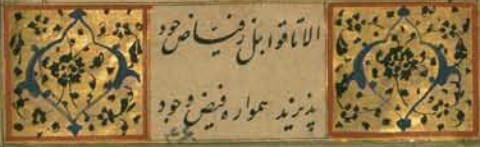 الا تا قوابل ز فیاض جود
پذیرند همواره فیض وجود